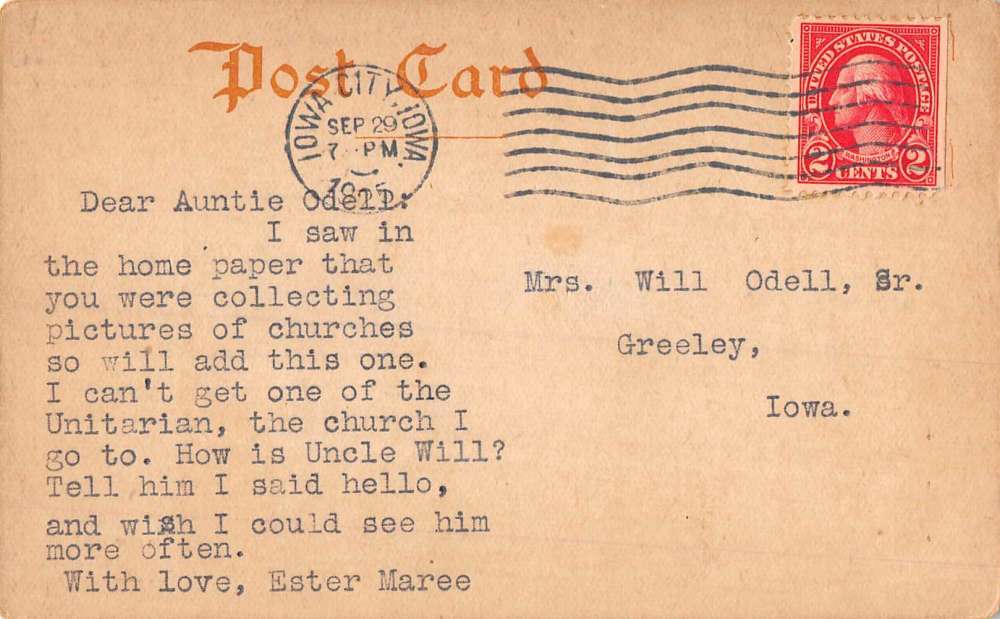 Post Card
IOWA CITY, IOWA.
SEP 29
7 PM
UNITED STATES POSTAGE
WASHINGTON
2 CENTS 2
Dear Auntie Odell:
I saw in
the home paper that
you were collecting
pictures of churches
so will add this one.
I can't get one of the
Unitarian, the church I
go to. How is Uncle Will?
Tell him I said hello,
and wish I could see him
more often.
With love, Ester Maree
Mrs. Will Odell, Sr.
Greeley,
Iowa.